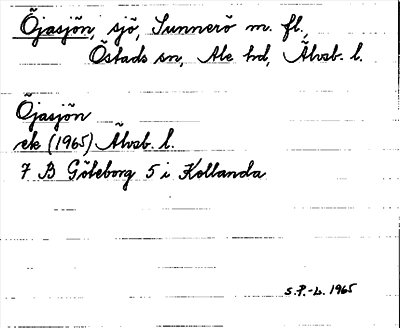 Öjasjön, sjö, Sunnerö m. fl.,
Östads sn, Ale hd, Älvsb. l.
Öjasjön
ek (1965) Älvsb. l.
7 B Göteborg 5 i Kollanda
S.P.-L. 1965